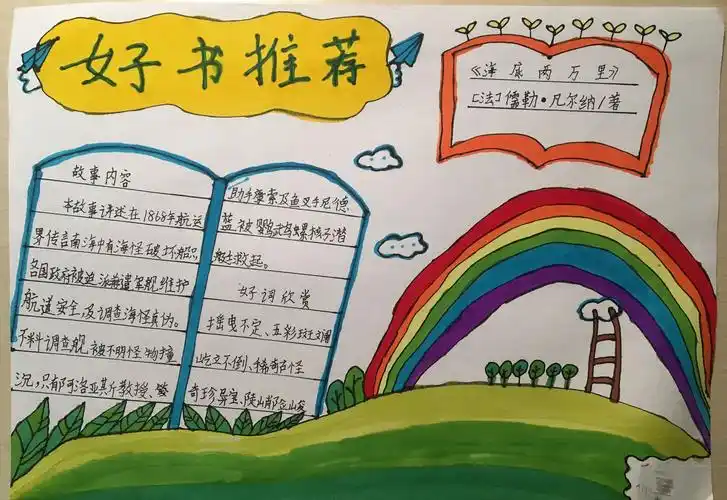 好书推荐
《海底两万里》
[法]儒勒·凡尔纳/著
故事内容
本故事讲述在1868年航运
界传言南海中有海怪破坏船只
各国政府被迫派遣军舰维护
航道安全,及调查海怪真伪。
不料调查舰被不明怪物撞
沉,只有阿洛亚其斤教授、
助手 及鱼叉手尼德
蓝被鹦鹉螺核子潜
艇救起。
好词欣赏
摇曳不定、五彩斑斓
屹立不倒、稀奇古怪
奇珍异宝、陡峭